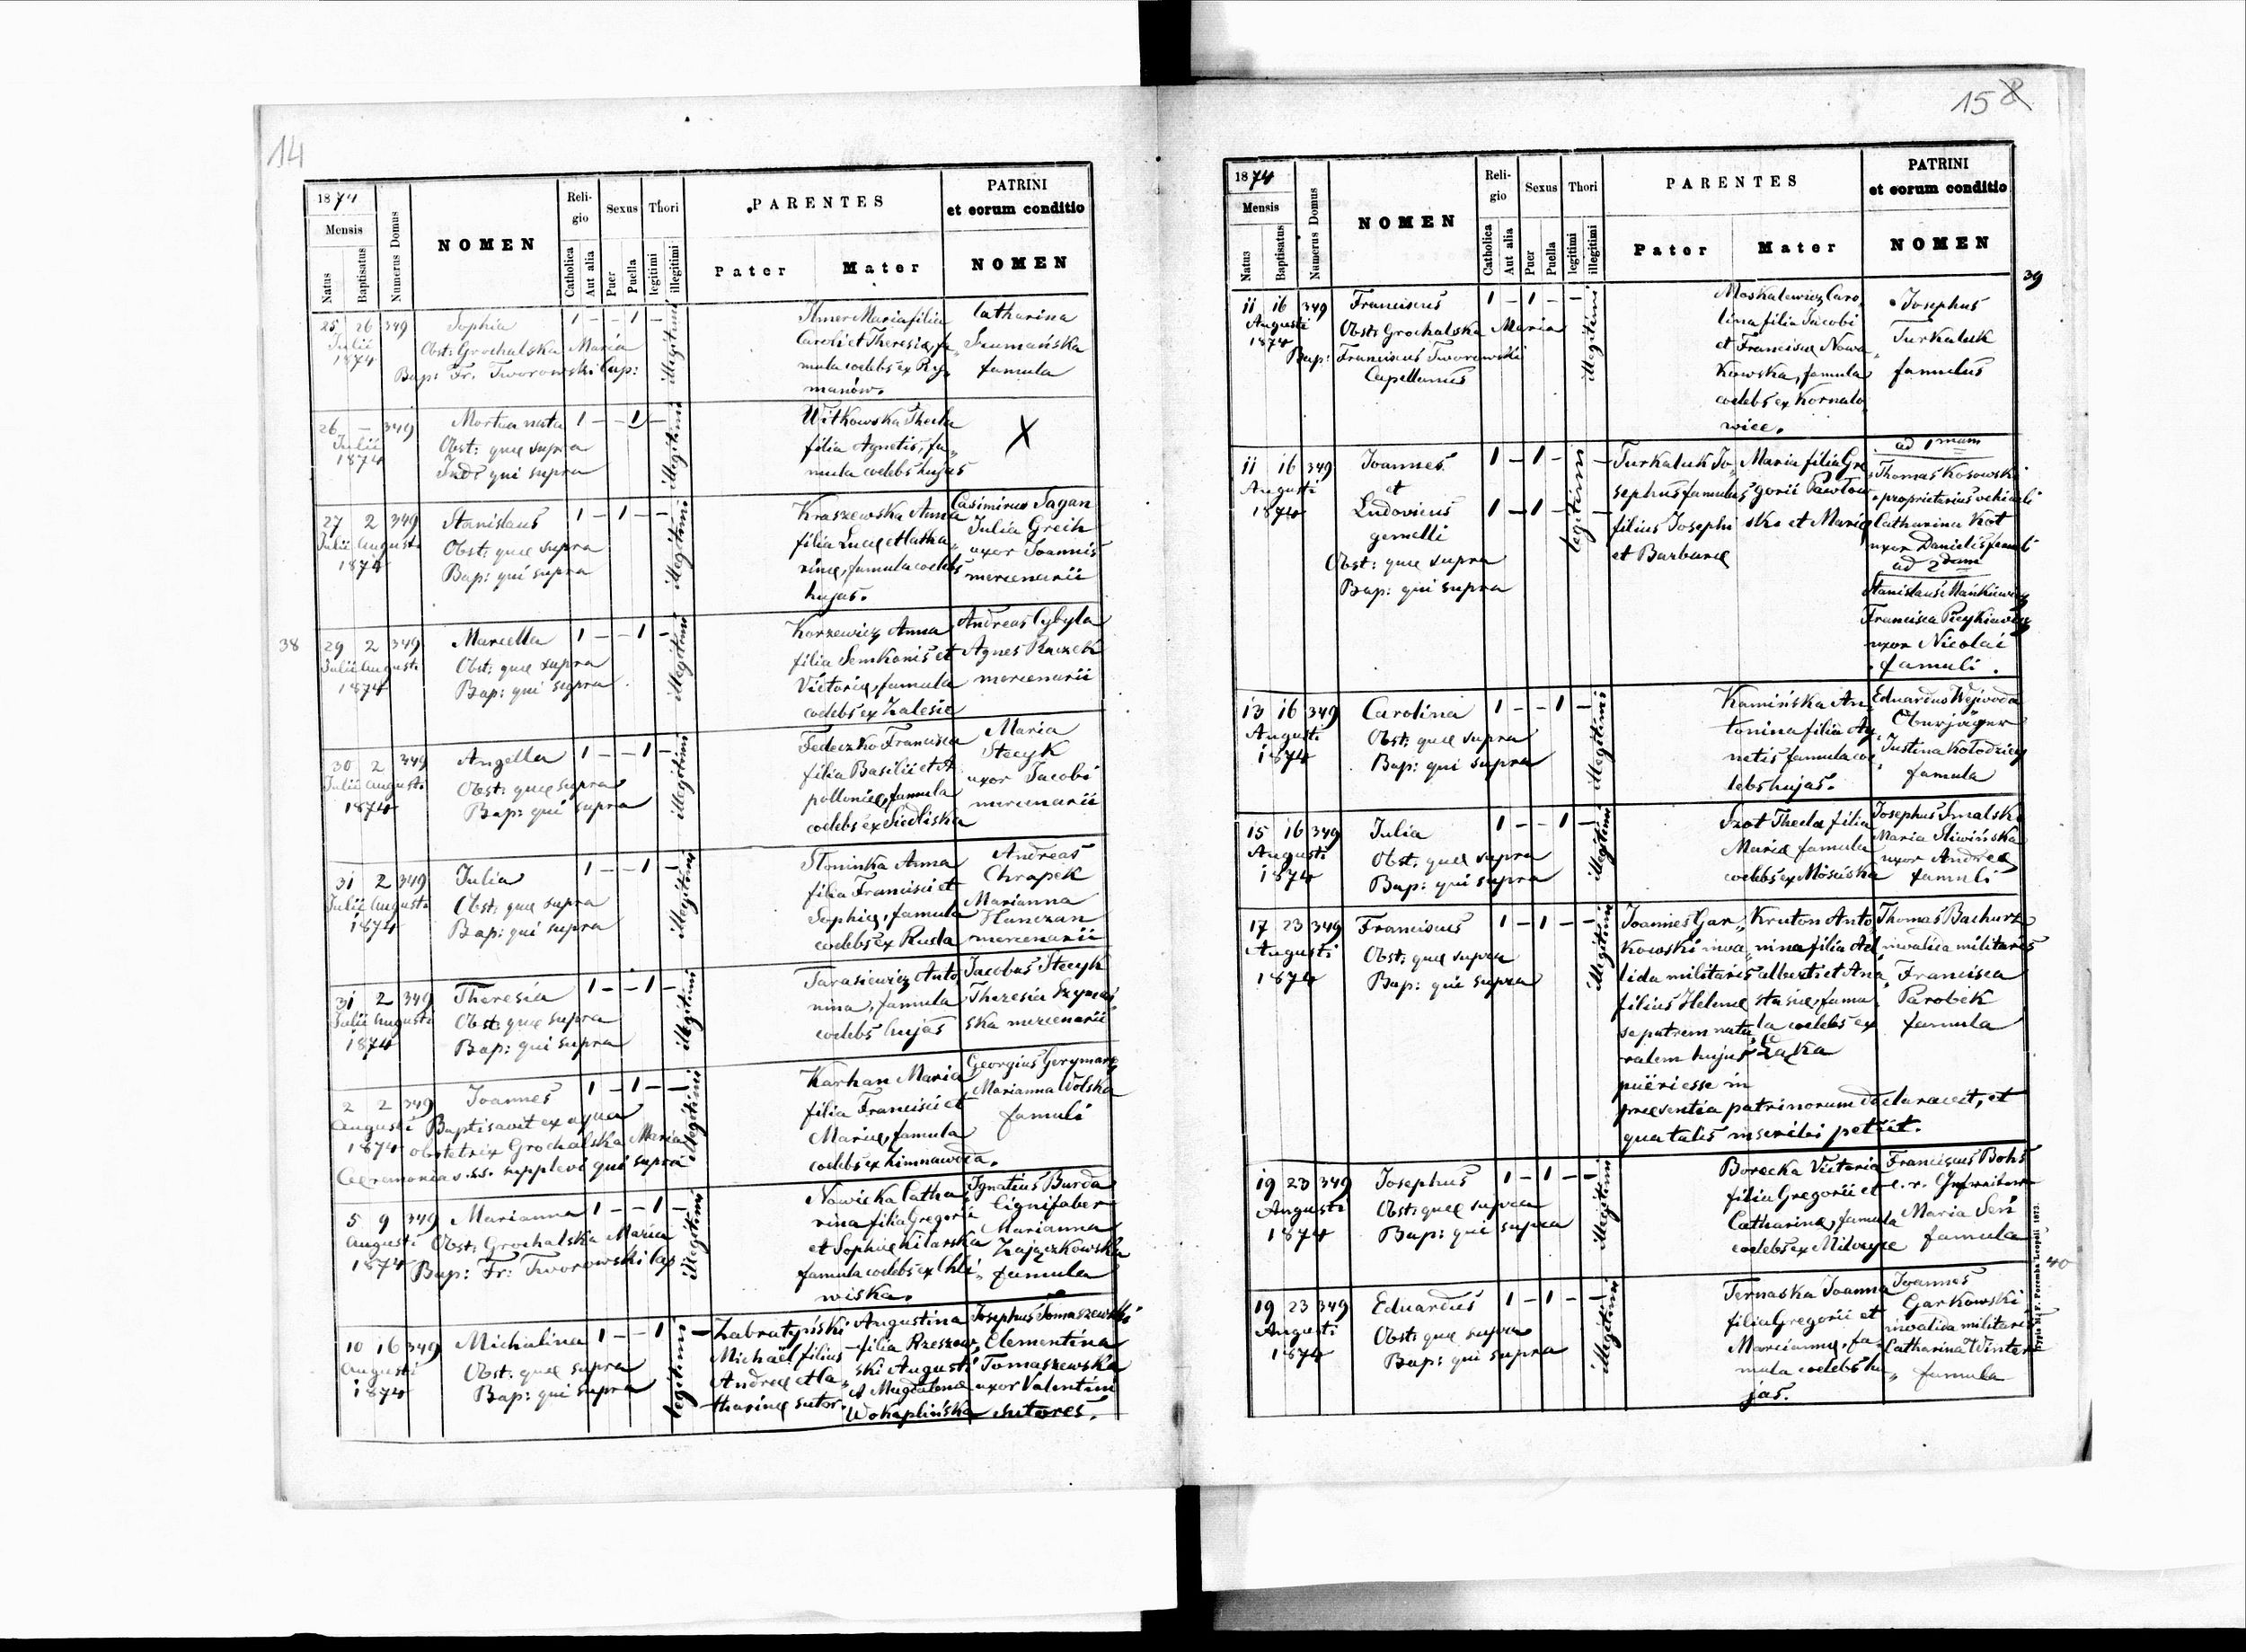 14
1874
Mensis
Natus
Baptisatus
Numerus Domus
NOMEN
Reli-
gio
Catholica
Aut alia
Sexus
Puer
Puella
Thori
legitimi
illegitimi
PARENTES
Pater
Mater
PATRINI
et eorum conditio
NOMEN
25 26 349 Sophia 1 – – 1 –
Julii
1874
Obst: Grochalska Maria
Bap: Fr. Tworowski Cap:
illegitimi
Maria filia
Caroli et Theresiæ, fa„
mula coelebs ex Ry„
manów.
Catharina
Szumańska
famula
26 – 349 Mortua nata 1 – – 1 –
Julii
1874
Obst: quæ supra
qui supra
illegitimi
Witkowska Thecla
filia Agnetis, fa„
mula coelebs hujas
X
27 2 349 Stanislaus 1 – 1 – –
Julii Augusti
1874
Obst: quæ supra
Bap: qui supra
illegitimi
Kraszewska Anna
filia Lucæ et Catha„
rinæ, famula coelebs
hujas.
Casimirus Sagan
Julia Greih
uxor Joannis
mercenarii
38
29 2 349 Marcella 1 – – 1 –
Julii Augusti
1874
Obst: quæ supra
Bap: qui supra
illegitimi
Korzewicz Anna
filia Semkonis et
Victoriæ, famula
coelebs ex Zalesie
Andreas Cybyla
Agnes Raczek
mercenarii
30 2 349 Angella 1 – – 1 –
Julii Augusti
1874
Obst: quæ supra
Bap: qui supra
illegitimi
Fedeczko Francisca
filia Basilii et A
polloniæ, famula
coelebs ex Siedliska
Maria
Stecyk
uxor Jacobi
mercenarii
31 2 349 Julia 1 – – 1 –
Julii Augusti
1874
Obst: quæ supra
Bap: qui supra
illegitimi
Słoninka Anna
filia Francisci et
Sophiæ, famula
coelebs ex Ruda
Andreas
Chrapek
Marianna
Hanczan
mercenarii
31 2 349 Theresia 1 – – 1 –
Julii Augusti
1874
Obst: quæ supra
Bap: qui supra
illegitimi
Tarasiewicz Anto
nina, famula
coelebs hujas
Jacobus Stecyk
Theresia Szymań
ska mercenarii
2 2 349 Joannes 1 – 1 – –
Augusti
1874
Baptisavit ex aqua
obstetrix Grochalska Maria
Ceremonias s.s. supplevi qui supra
illegitimi
Karhan Maria
filia Francisci et
Mariæ, famula
coelebs ex Zimnawoda.
Georgius Gerymarz
Marianna Wolska
famuli
5 9 349 Marianna 1 – – 1 –
Augusti
1874
Obst: Grochalska Maria
Bap: Fr: Tworowski Cap
illegitimi
Nawicka Catha„
rina filia Gregorii
et Sophiæ Kitarska
famula coelebs ex Chli„
wiska.
Ignatius Burda
lignifaber
Marianna
Zajączkowska
famula
10 16 349 Michalina 1 – – 1 –
Augusti
1874
Obst: quæ supra
Bap: qui supra
legitimi
Zabratyński
Michaël filius
Andreæ et Ca„
tharinæ sutor.
Augustina
filia Rzeszow„
ski Augusti
et Magdalenæ
Wokaplińska
Josephus Tomaszewski
Clementina
Tomaszewska
uxor Valentini
sutores.
15
1874
Mensis
Natus
Baptisatus
Numerus Domus
NOMEN
Reli-
gio
Catholica
Aut alia
Sexus
Puer
Puella
Thori
legitimi
illegitimi
PARENTES
Pater
Mater
PATRINI
et eorum conditio
NOMEN
39
11 16 349 Franciscus 1 – 1 – –
Augusti
1874
Obst: Grochalska Maria
Bap: Franciscus Tworowski
Capellanus
illegitimi
Moskalewicz Caro„
lina filia Jacobi
et Franciscæ Nowa„
kowska, famula
coelebs ex Kornalo
wice.
Josephus
Turkaluk
famulus
11 16 349 Joannes 1 – 1 – –
Augusti
1874
et
Ludovicus 1 – 1 – –
gemelli
Obst: quæ supra
Bap: qui supra
legitimi
Turkaluk Jo„
sephus famulus
filius Josephi
et Barbaræ
Maria filia Gre
gorii Pawłow
ska et Mariæ
ad 1mum
Thomas Kosowski
proprietarius vehiculi
Catharina Kot
uxor Danielis famuli
ad 2dum
Stanislaus Mańkiewicz
Francisca
uxor Nicolai
famuli.
13 16 349 Carolina 1 – – 1 –
Augusti
1874
Obst: quæ supra
Bap: qui supra
illegitimi
Kamińska An„
tonina filia Ag„
netis famula coe„
lebs hujas.
Eduardus Wejwoda
Oberjäger
Justina Kołodziej
famula
15 16 349 Julia 1 – – 1 –
Augusti
1874
Obst: quæ supra
Bap: qui supra
illegitimi
Szot Thecla filia
Mariæ famula
coelebs ex Mościska
Josephus Smalski
Maria Śliwińska
uxor Andreæ
famuli
17 23 349 Franciscus 1 – 1 – –
Augusti
1874
Obst: quæ supra
Bap: qui supra
illegitimi
Joannes Gar„
kowski inva„
lida militaris
filius Helenæ
se patrem natu
ralem hujus
pueri esse in
præsentia patrinorum declaravit, et
qua talis inscribi petiit.
Kruton Anto
nina filia Ad
alberti et Ana„
stasiæ, famu
la coelebs ex
Łąka
Thomas Bachurz
invalida militaris
Francisca
Parobek
famula
19 23 349 Josephus 1 – 1 – –
Augusti
1874
Obst: quæ supra
Bap: qui supra
illegitimi
Borecka Victoria
filia Gregorii et
Catharinæ, famula
coelebs ex
Franciscus Bohs
Maria Sen
famula
40
19 23 349 Eduardus 1 – 1 – –
Augusti
1874
Obst: quæ supra
Bap: qui supra
illegitimi
Ternaska Joanna
filia Gregorii et
Mariannæ, fa„
mula coelebs hu„
jas.
Joannes
Garkowski
invalida militaris
Catharina Winter
famula
Typis M. F. Poremba Leopoli 1873.